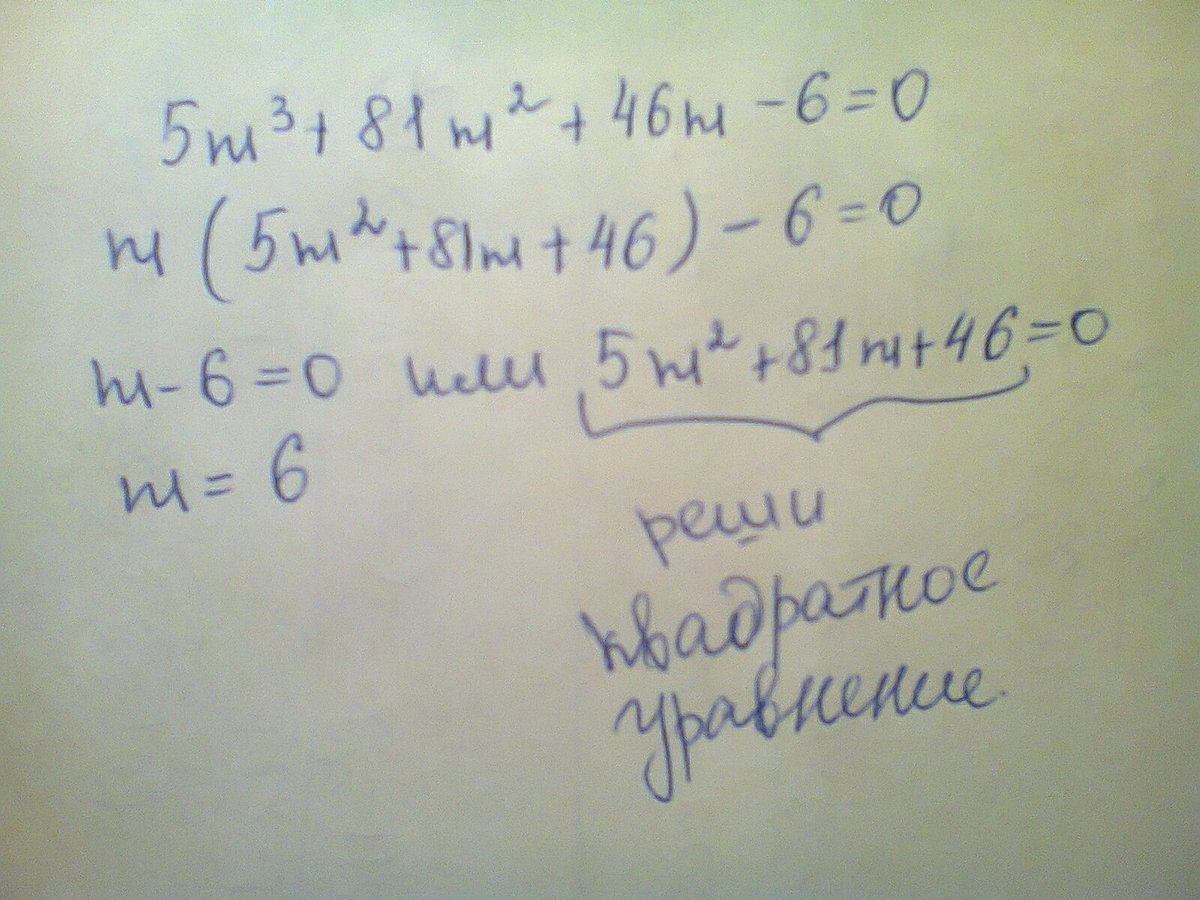 5m³ + 81m² + 46m - 6 = 0
m (5m² + 81m + 46) - 6 = 0
m - 6 = 0 или 5m² + 81m + 46 = 0
m = 6
реши
квадратное
уравнение.